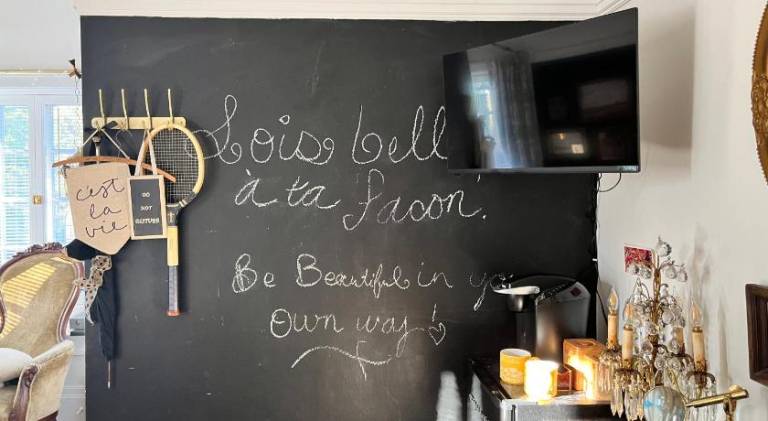 c'est
la
vie
DO
NOT
DISTURB
Sois bell
à ta facon.
Be Beautiful in yo
Own way!